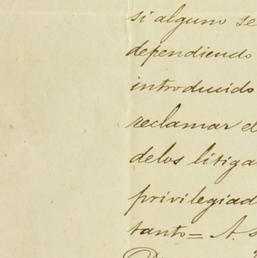 si alguno se
dependiendo
introducido
reclamar el
delos litiga
privilegiad
tanto = A. s